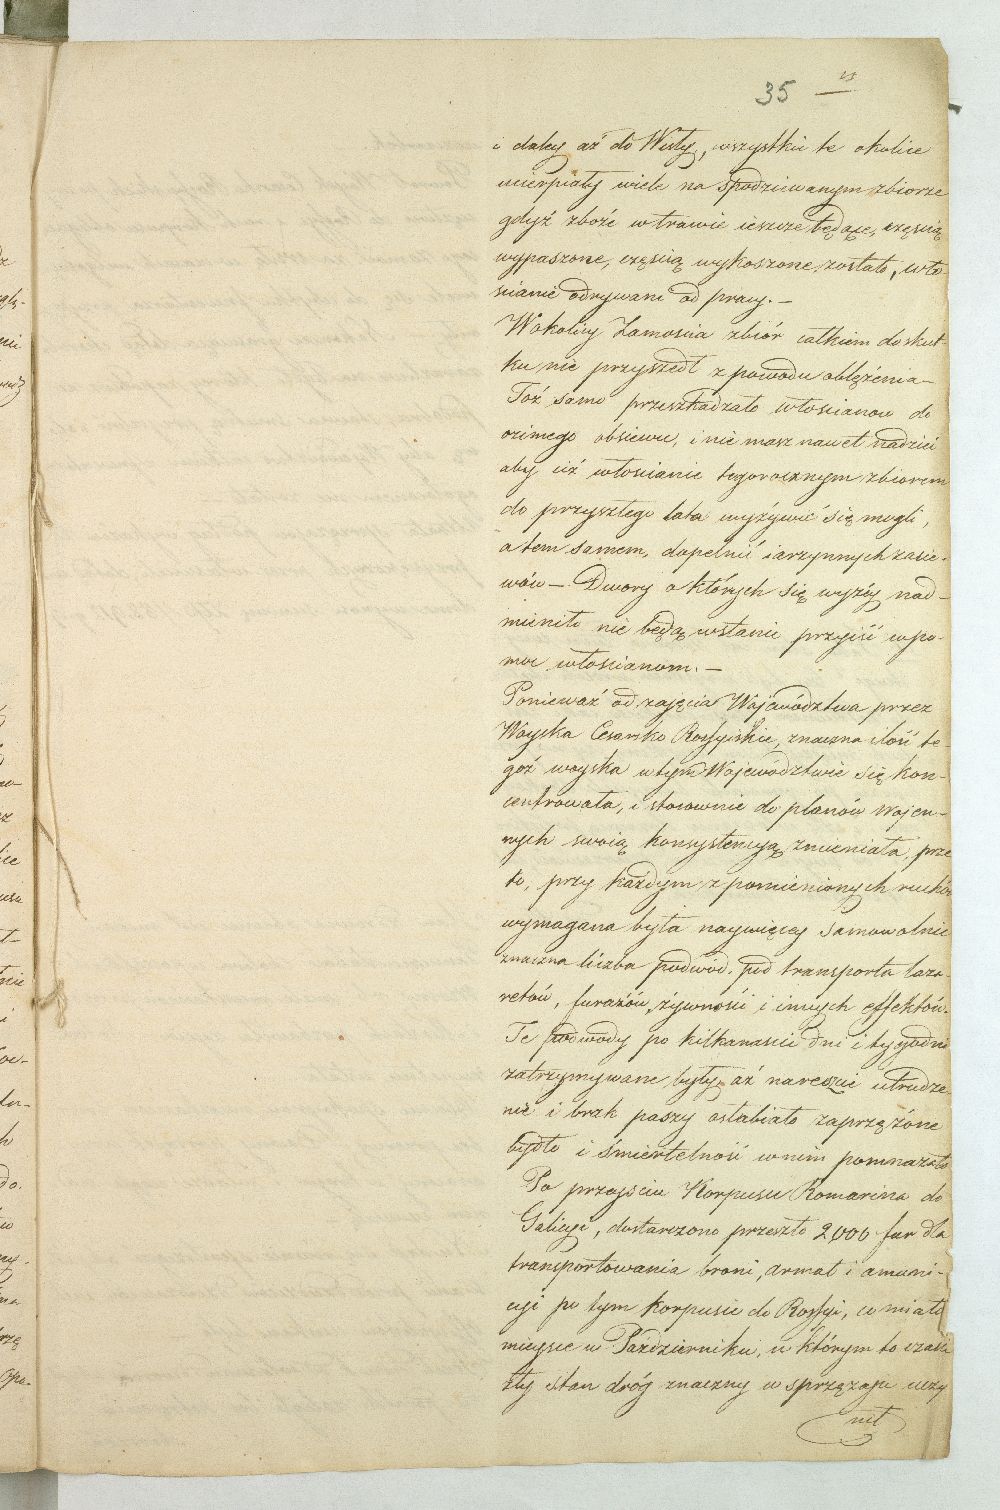 35
i daley aż do Wisły, wszystkie te okolice
ucierpiały wiele na spodziewanym zbiorze
gdyż zboże w trawie ieszcze będące, częscią
wypaszone, częscią wykoszone zostało, wło-
scianie odrywani od pracy.—
W okolicy Zamoscia zbiór całkiem do skut-
ku nie przyszedł z powodu oblężenia—
Toż samo przeszkadzało włoscianom do
ozimego obsiewu, i nie masz nawet nadziei
aby ciż włoscianie tegorocznym zbiorem
do przyszłego lata wyżywić się mogli,
a tem samem, dopełnić iarzynnych zasie-
wów— Dwory o których się wyżey nad-
mieniło nie będą wstanie przyiść w po-
moc włoscianom.—
Ponieważ od zajęcia Województwa przez
Woyska Cesarsko Rossyiskie, znaczna ilość te-
goż woyska w tym Województwie się kon-
centrowała, i stosownie do planów wojen-
nych swoią konsystencyą zmieniała, prze
to, przy każdym z pomienionych ruchów
wymagana była naywięcey samowolnie
znaczna liczba podwód, pod transporta laza-
retów, furażów, żywności i innych effektów.
Te podwody po kilkanascie dni i tygodni
zatrzymywane były, aż nareszcie utrudze-
nie i brak paszy osłabiało zaprzężone
bydło i śmiertelność w nim pomnażało
Po przejsciu Korpusu Romarina do
Galicyi, dostarczono przeszło 2000 fur dla
transportowania broni, armat i amuni-
cyi po tym korpusie do Rossyi, co miało
mieysce w Październiku, w którym to czasie
zły stan dróg znaczny w sprzężaju uczy
nił